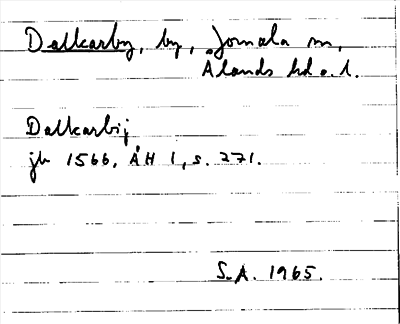 Dalkarby, by, Jomala sn,
Ålands hd o. l.
Dalkarbij
jb 1566, ÅH 1, s. 271.
S.A. 1965.